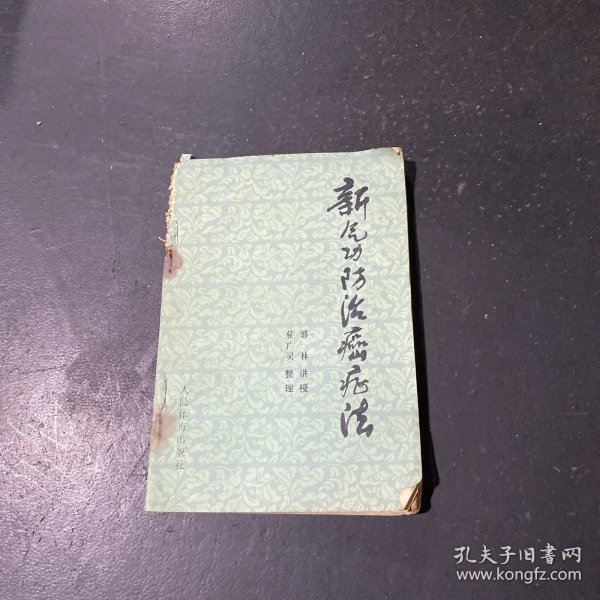 新气功防治癌症法
郭林 讲授
侯广灵 整理
人民体育出版社
孔夫子旧书网
www.kongfz.com